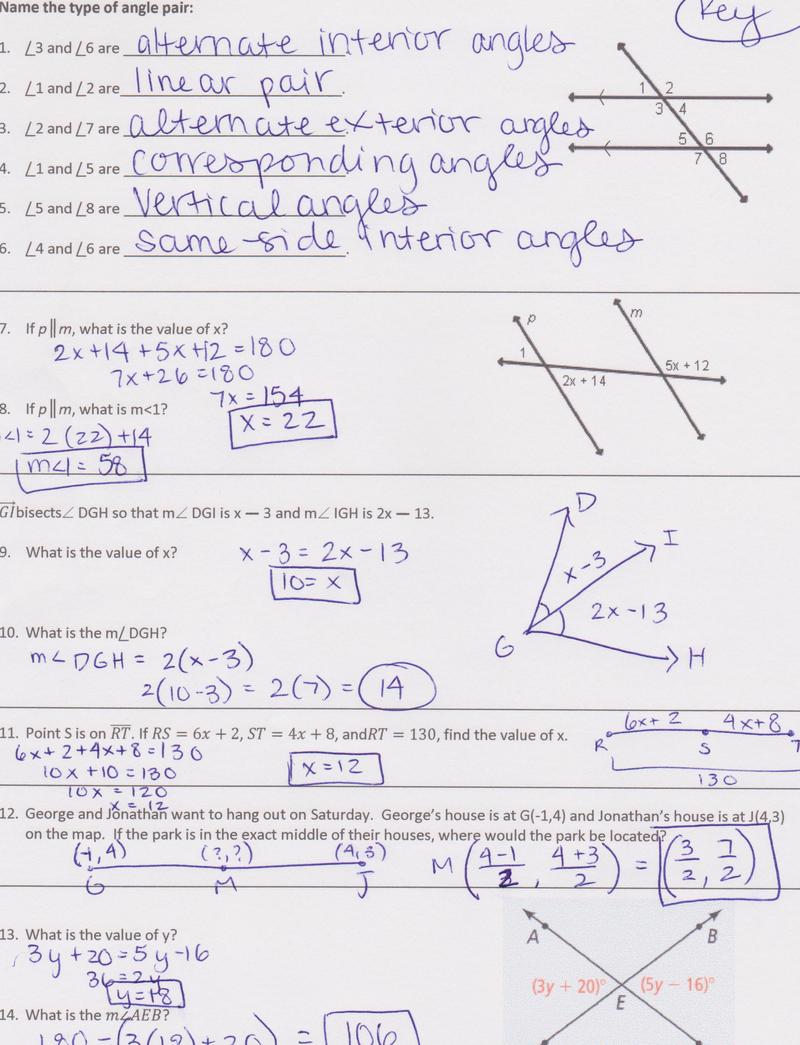 Name the type of angle pair:
Key
1. ∠3 and ∠6 are alternate interior angles
2. ∠1 and ∠2 are linear pair.
3. ∠2 and ∠7 are alternate exterior angles
4. ∠1 and ∠5 are corresponding angles
5. ∠5 and ∠8 are vertical angles
6. ∠4 and ∠6 are same-side interior angles
1 2
3 4
5 6
7 8
7. If p∥m, what is the value of x?
2x+14+5x+12=180
7x+26=180
7x=154
x=22
8. If p∥m, what is m<1?
<1=2(22)+14
m<1=58
p
m
1
2x + 14
5x + 12
GI bisects∠ DGH so that m∠ DGI is x — 3 and m∠ IGH is 2x — 13.
9. What is the value of x?
x-3=2x-13
10=x
D
I
x-3
2x-13
G
H
10. What is the m∠DGH?
m∠DGH = 2(x-3)
2(10-3) = 2(7) = 14
11. Point S is on RT. If RS = 6x + 2, ST = 4x + 8, andRT = 130, find the value of x.
6x+2+4x+8=130
10x+10=130
10x=120
x=12
x=12
6x+2 4x+8
R S T
130
12. George and Jonathan want to hang out on Saturday. George's house is at G(-1,4) and Jonathan's house is at J(4,3)
on the map. If the park is in the exact middle of their houses, where would the park be located?
(-1,4) (?,?) (4,3)
G M J
M (4-1/2, 4+3/2) = (3/2, 7/2)
13. What is the value of y?
3y+20=5y-16
36=2y
y=18
A
B
(3y + 20)° (5y − 16)°
E
14. What is the m∠AEB?
180-(3(18)+20) = 106